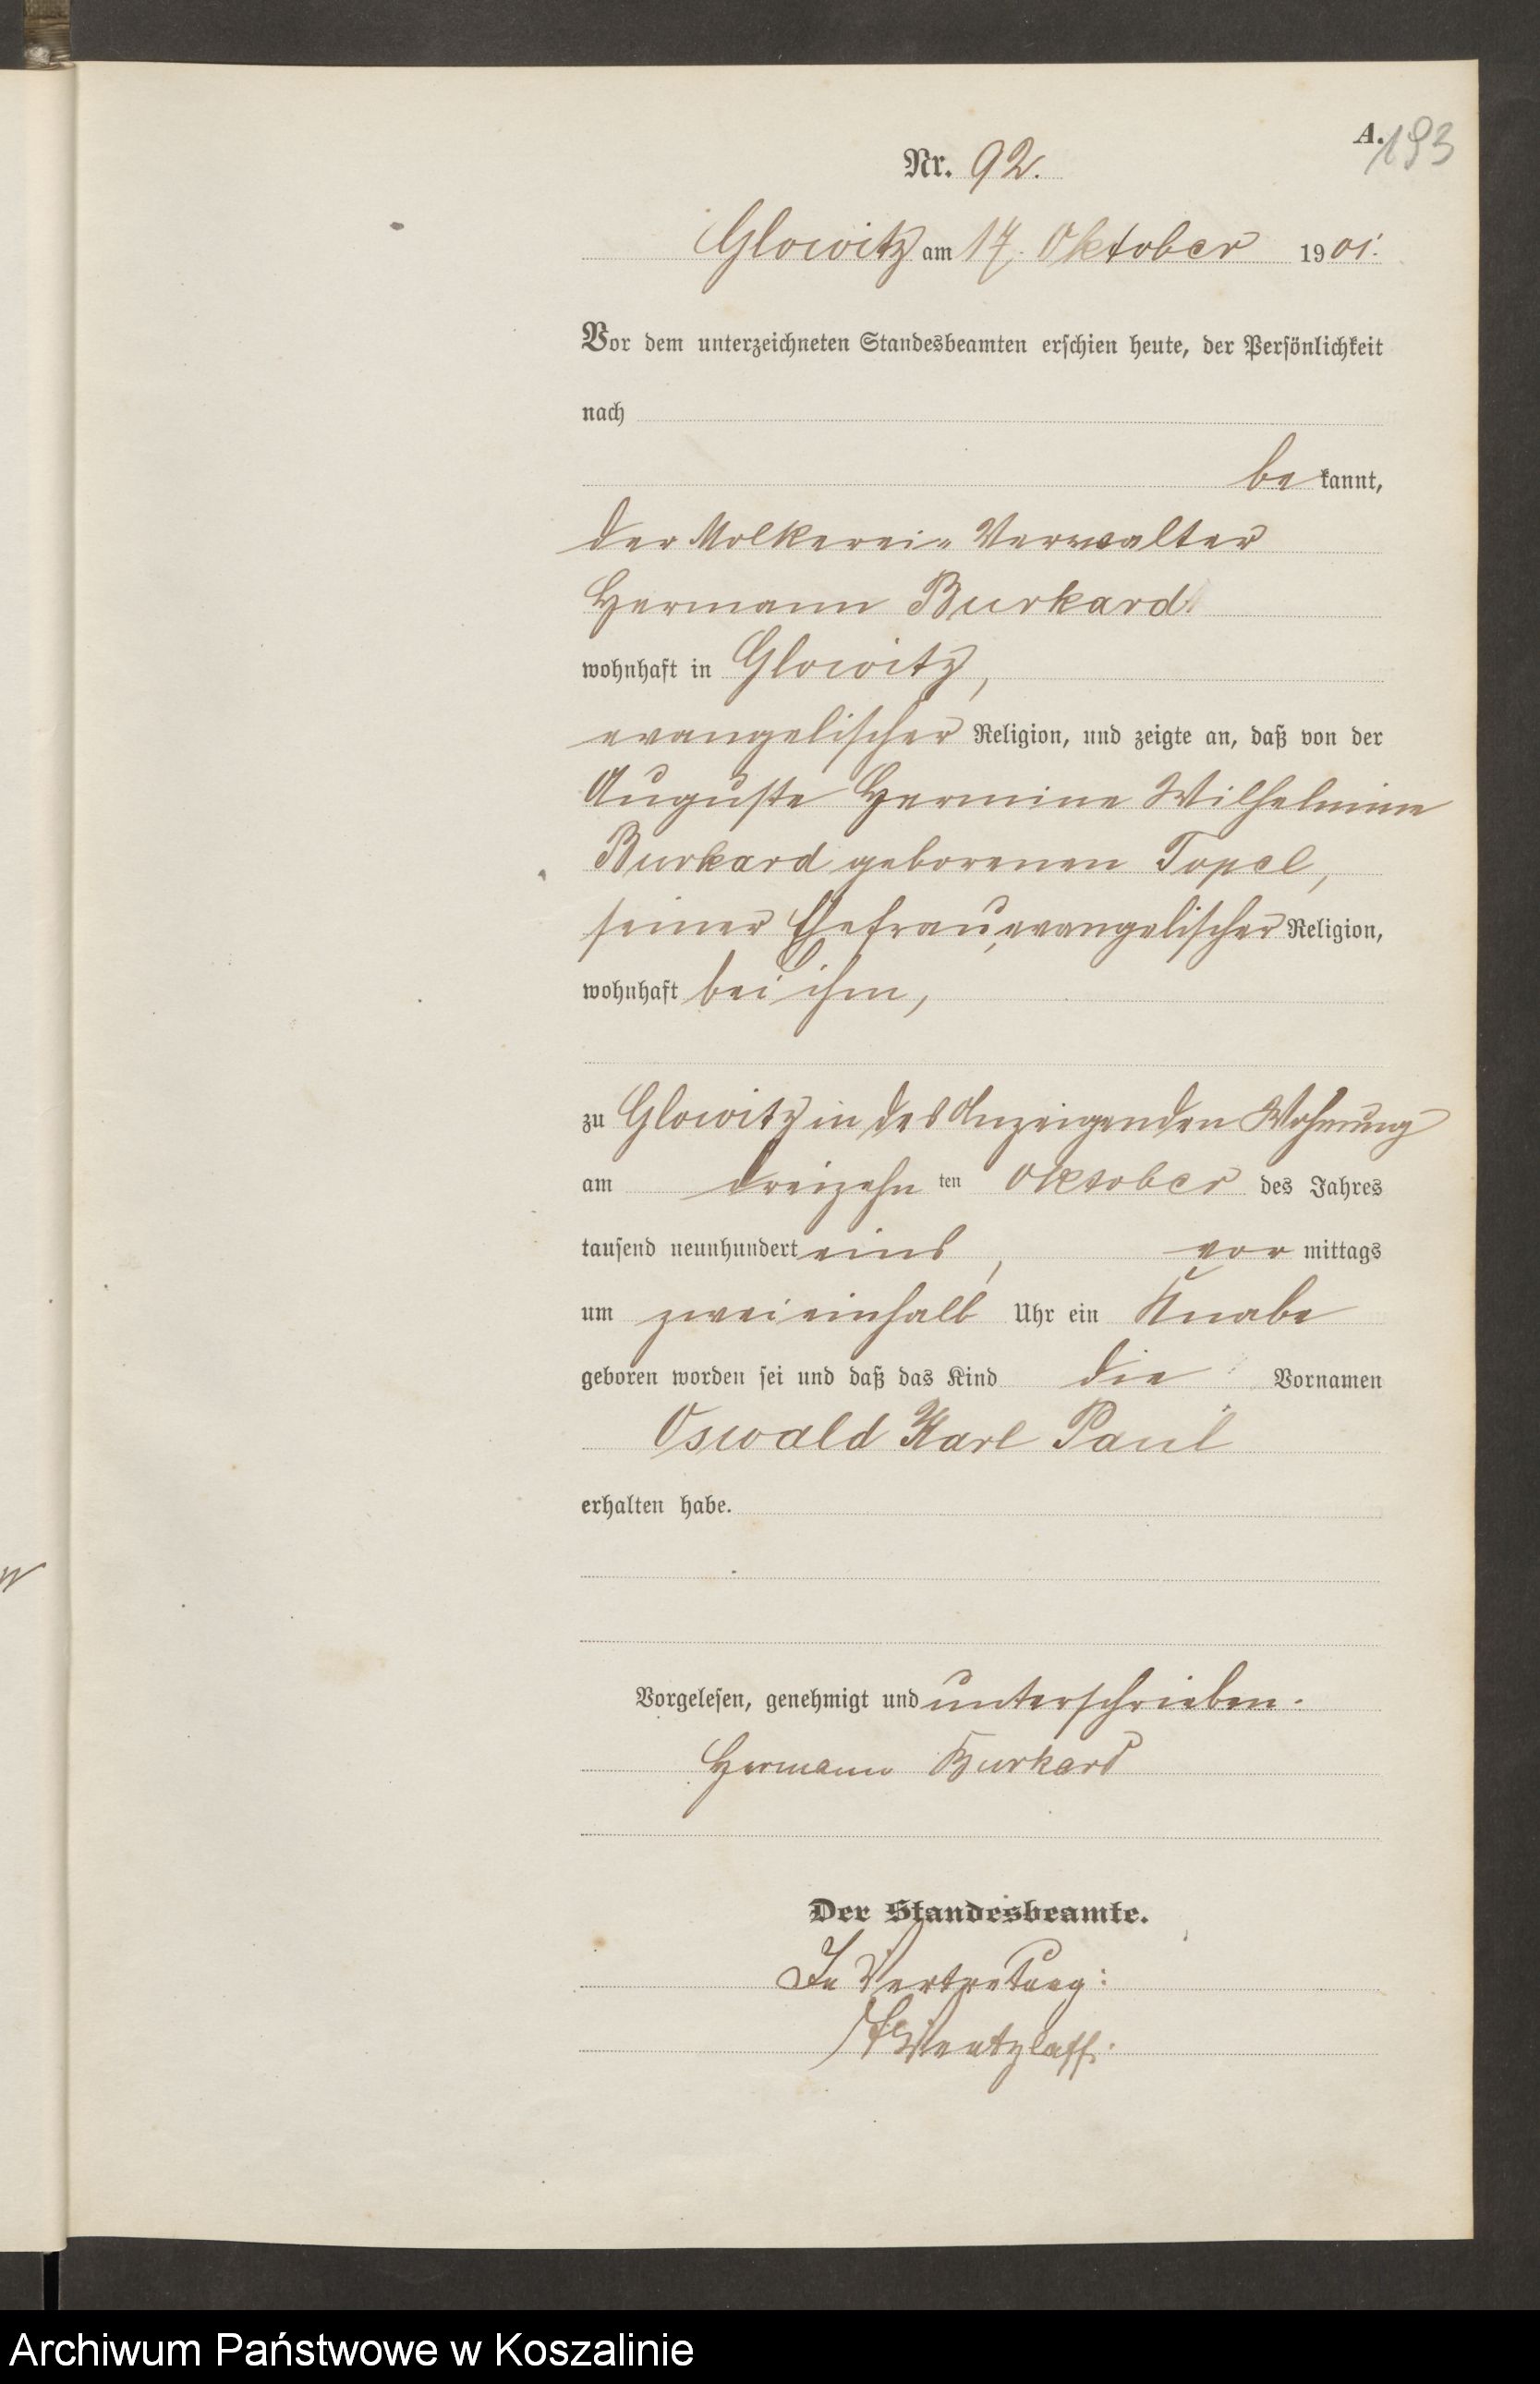 A.
193
Nr. 92.
Glowitz am 17. Oktober 1901.
Vor dem unterzeichneten Standesbeamten erschien heute, der Persönlichkeit
nach
be kannt,
der Molkerei-Verwalter
Hermann Burkard
wohnhaft in Glowitz,
evangelischer Religion, und zeigte an, daß von der
Auguste Hermine Wilhelmine
Burkard geborenen Topel,
seiner Ehefrau, evangelischer Religion,
wohnhaft bei ihm,
zu Glowitz in des Anzeigenden Wohnung
am dreizehn ten Oktober des Jahres
tausend neunhundert eins, vor mittags
um zweieinhalb Uhr ein Knabe
geboren worden sei und daß das Kind die Vornamen
Oswald Karl Paul
erhalten habe.
Vorgelesen, genehmigt und unterschrieben.
Hermann Burkard
Der Standesbeamte.
In Vertretung:
Wentzlaff.
Archiwum Państwowe w Koszalinie